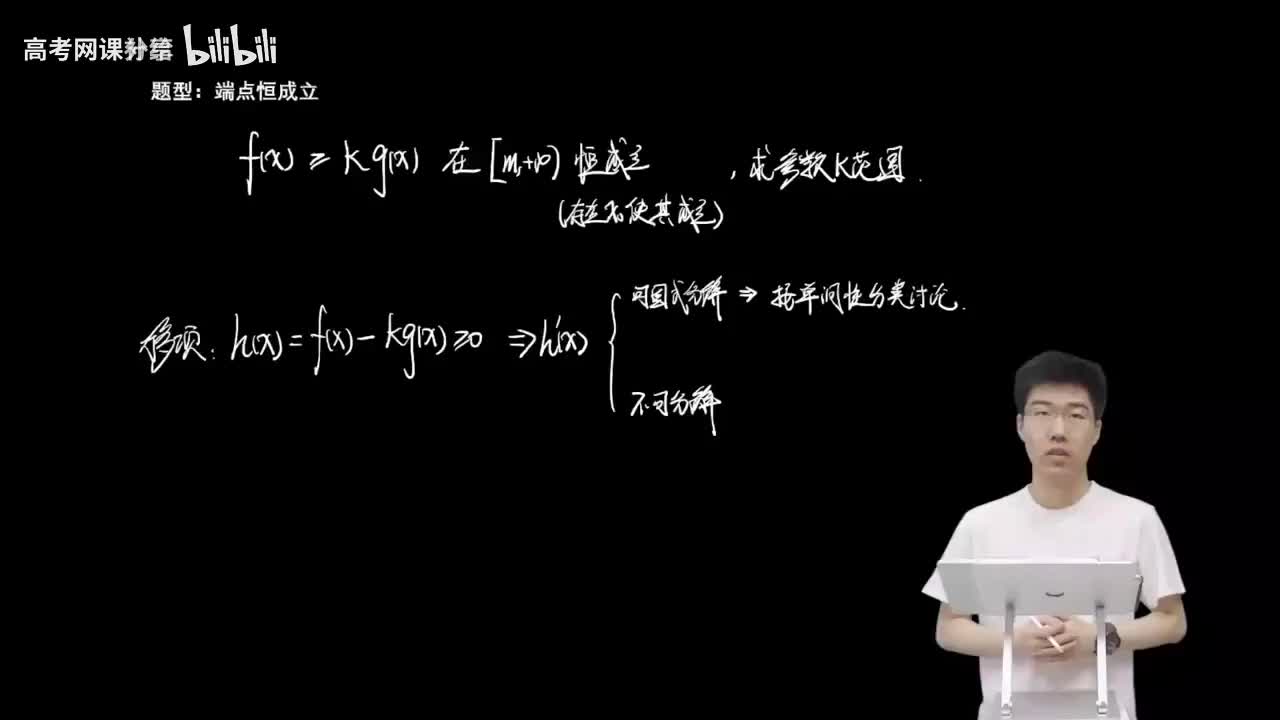 高考网课补给 bilibili
题型：端点恒成立
f(x) ≥ kg(x) 在 [m,+∞) 恒成立，求参数k范围.
(存在x0使其成立)
移项: h(x) = f(x) - kg(x) ≥ 0 ⇒ h'(x)
可因式分解 ⇒ 按单调性分类讨论.
不可分解